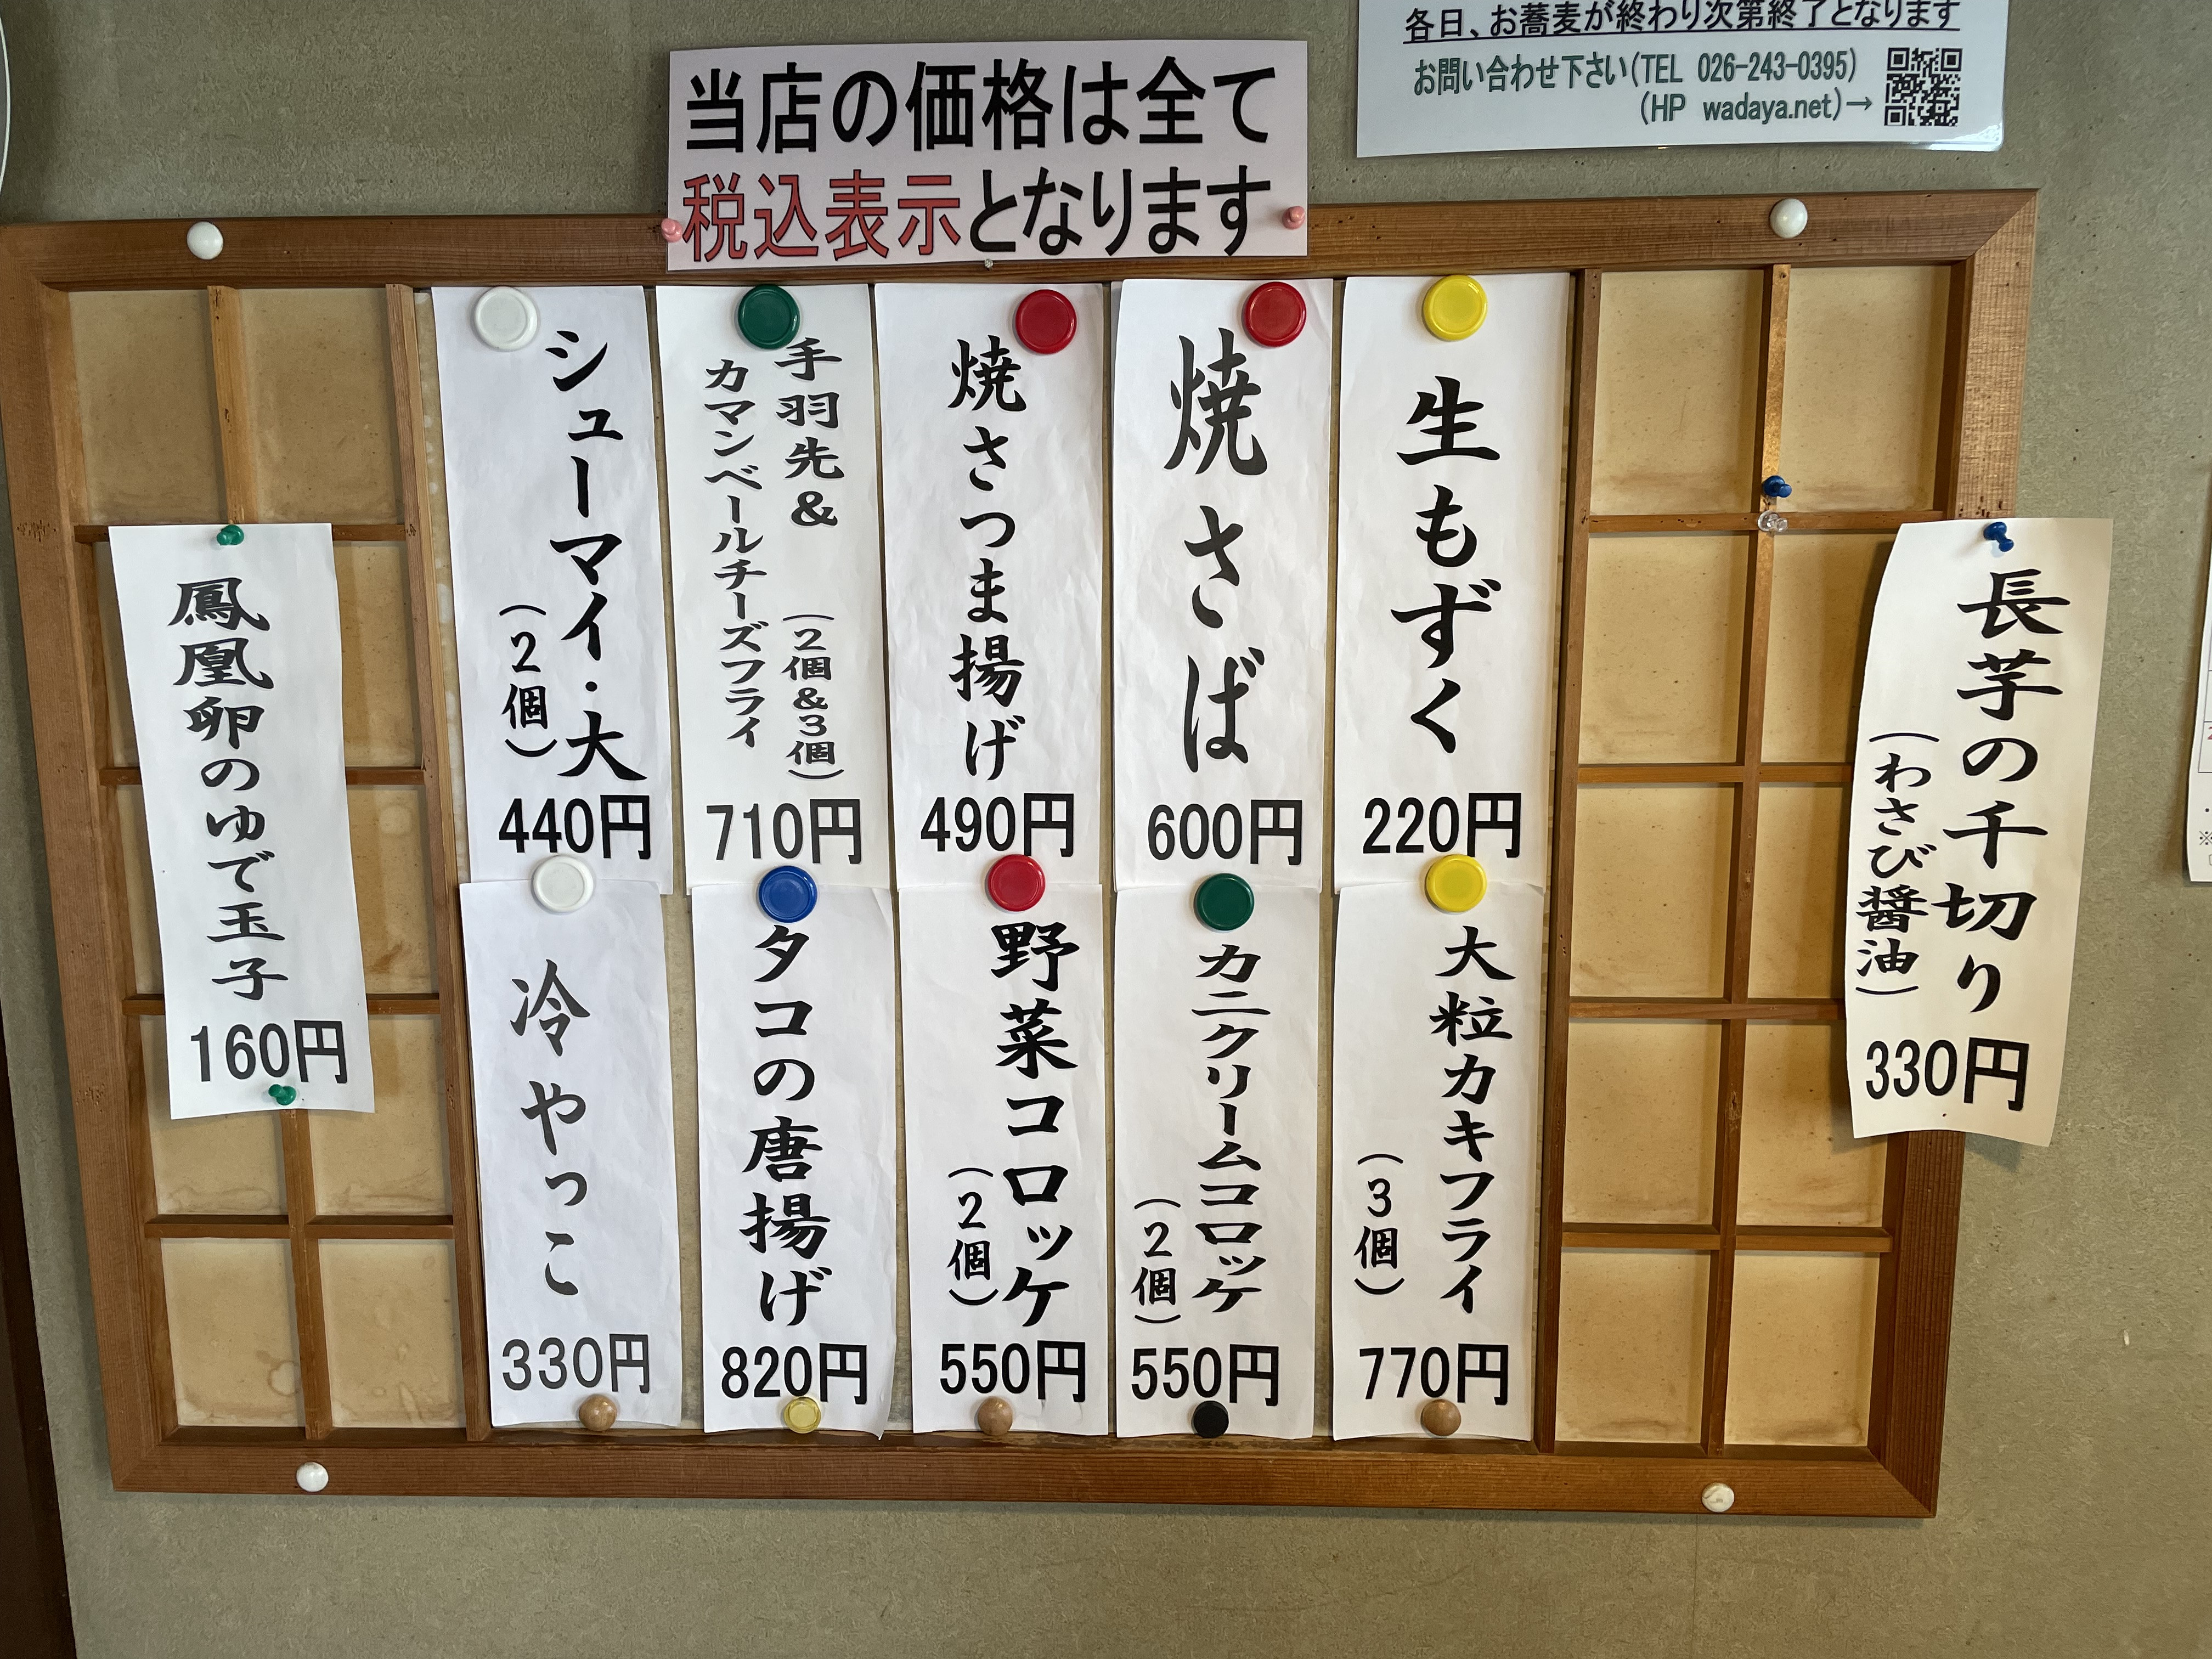 各日、お蕎麦が終わり次第終了となります
お問い合わせ下さい(TEL 026-243-0395)
(HP wadaya.net)→
当店の価格は全て
税込表示となります
長芋の千切り
(わさび醤油)
330円
生もずく
220円
焼さば
600円
焼さつま揚げ
490円
手羽先&
(2個&3個)
カマンベールチーズフライ
710円
シューマイ・大
(2個)
440円
大粒カキフライ
(3個)
770円
カニクリームコロッケ
(2個)
550円
野菜コロッケ
(2個)
550円
タコの唐揚げ
820円
冷やっこ
330円
鳳凰卵のゆで玉子
160円